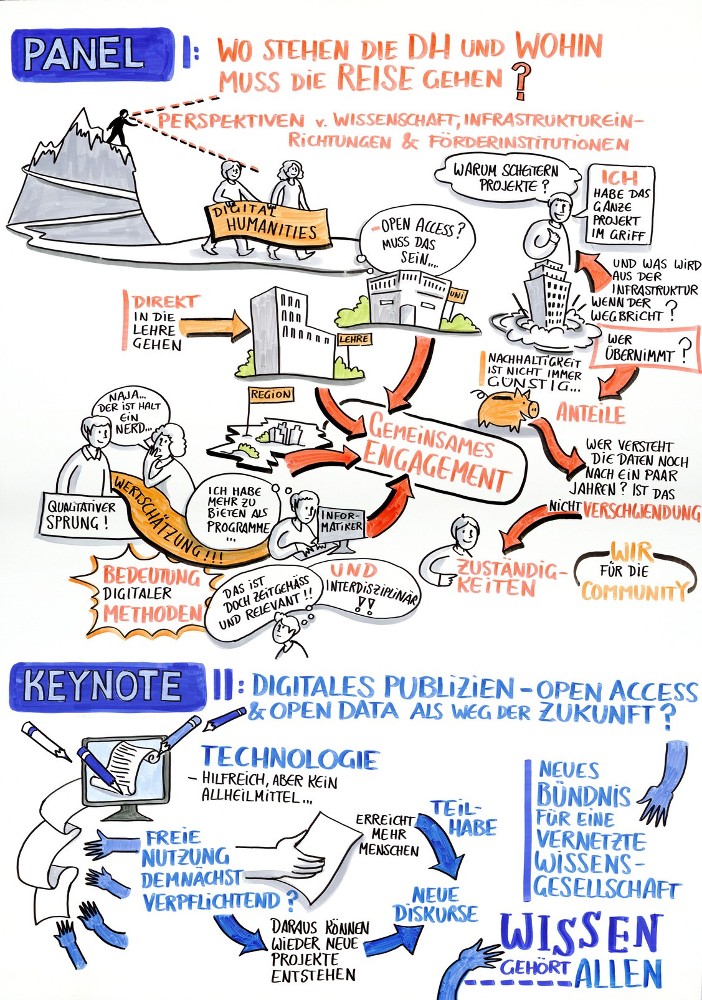 PANEL I: WO STEHEN DIE DH UND WOHIN
MUSS DIE REISE GEHEN?
PERSPEKTIVEN v. WISSENSCHAFT, INFRASTRUKTUREIN-
RICHTUNGEN & FÖRDERINSTITUTIONEN
DIGITAL
HUMANITIES
WARUM SCHEITERN
PROJEKTE?
ICH
HABE DAS
GANZE
PROJEKT
IM GRIFF
- OPEN ACCESS?
MUSS DAS
SEIN...
UNI
UND WAS WIRD
AUS DER
INFRASTRUKTUR
WENN DER
WEGBRICHT?
WER
ÜBERNIMMT?
DIREKT
IN DIE
LEHRE
GEHEN
LEHRE
NACHHALTIGKEIT
IST NICHT IMMER
GÜNSTIG...
ANTEILE
REGION
GEMEINSAMES
ENGAGEMENT
WER VERSTEHT
DIE DATEN NOCH
NACH EIN PAAR
JAHREN? IST DAS
NICHT VERSCHWENDUNG
NAJA...
DER IST HALT
EIN
NERD...
QUALITATIVER
SPRUNG!
WERTSCHÄTZUNG!!!
ICH HABE
MEHR ZU
BIETEN ALS
PROGRAMME
...
INFOR-
MATIKER
ZUSTÄNDIG-
KEITEN
WIR
FÜR DIE
COMMUNITY
BEDEUTUNG
DIGITALER
METHODEN
DAS IST
DOCH ZEITGEMÄSS
UND RELEVANT!!
UND
INTERDISZIPLINÄR
!!
KEYNOTE II: DIGITALES PUBLIZIEN - OPEN ACCESS
& OPEN DATA ALS WEG DER ZUKUNFT?
TECHNOLOGIE
- HILFREICH, ABER KEIN
ALLHEILMITTEL...
FREIE
NUTZUNG
DEMNÄCHST
VERPFLICHTEND?
ERREICHT
MEHR
MENSCHEN
TEIL-
HABE
NEUE
DISKURSE
DARAUS KÖNNEN
WIEDER NEUE
PROJEKTE
ENTSTEHEN
NEUES
BÜNDNIS
FÜR EINE
VERNETZTE
WISSENS-
GESELLSCHAFT
WISSEN
GEHÖRT
ALLEN